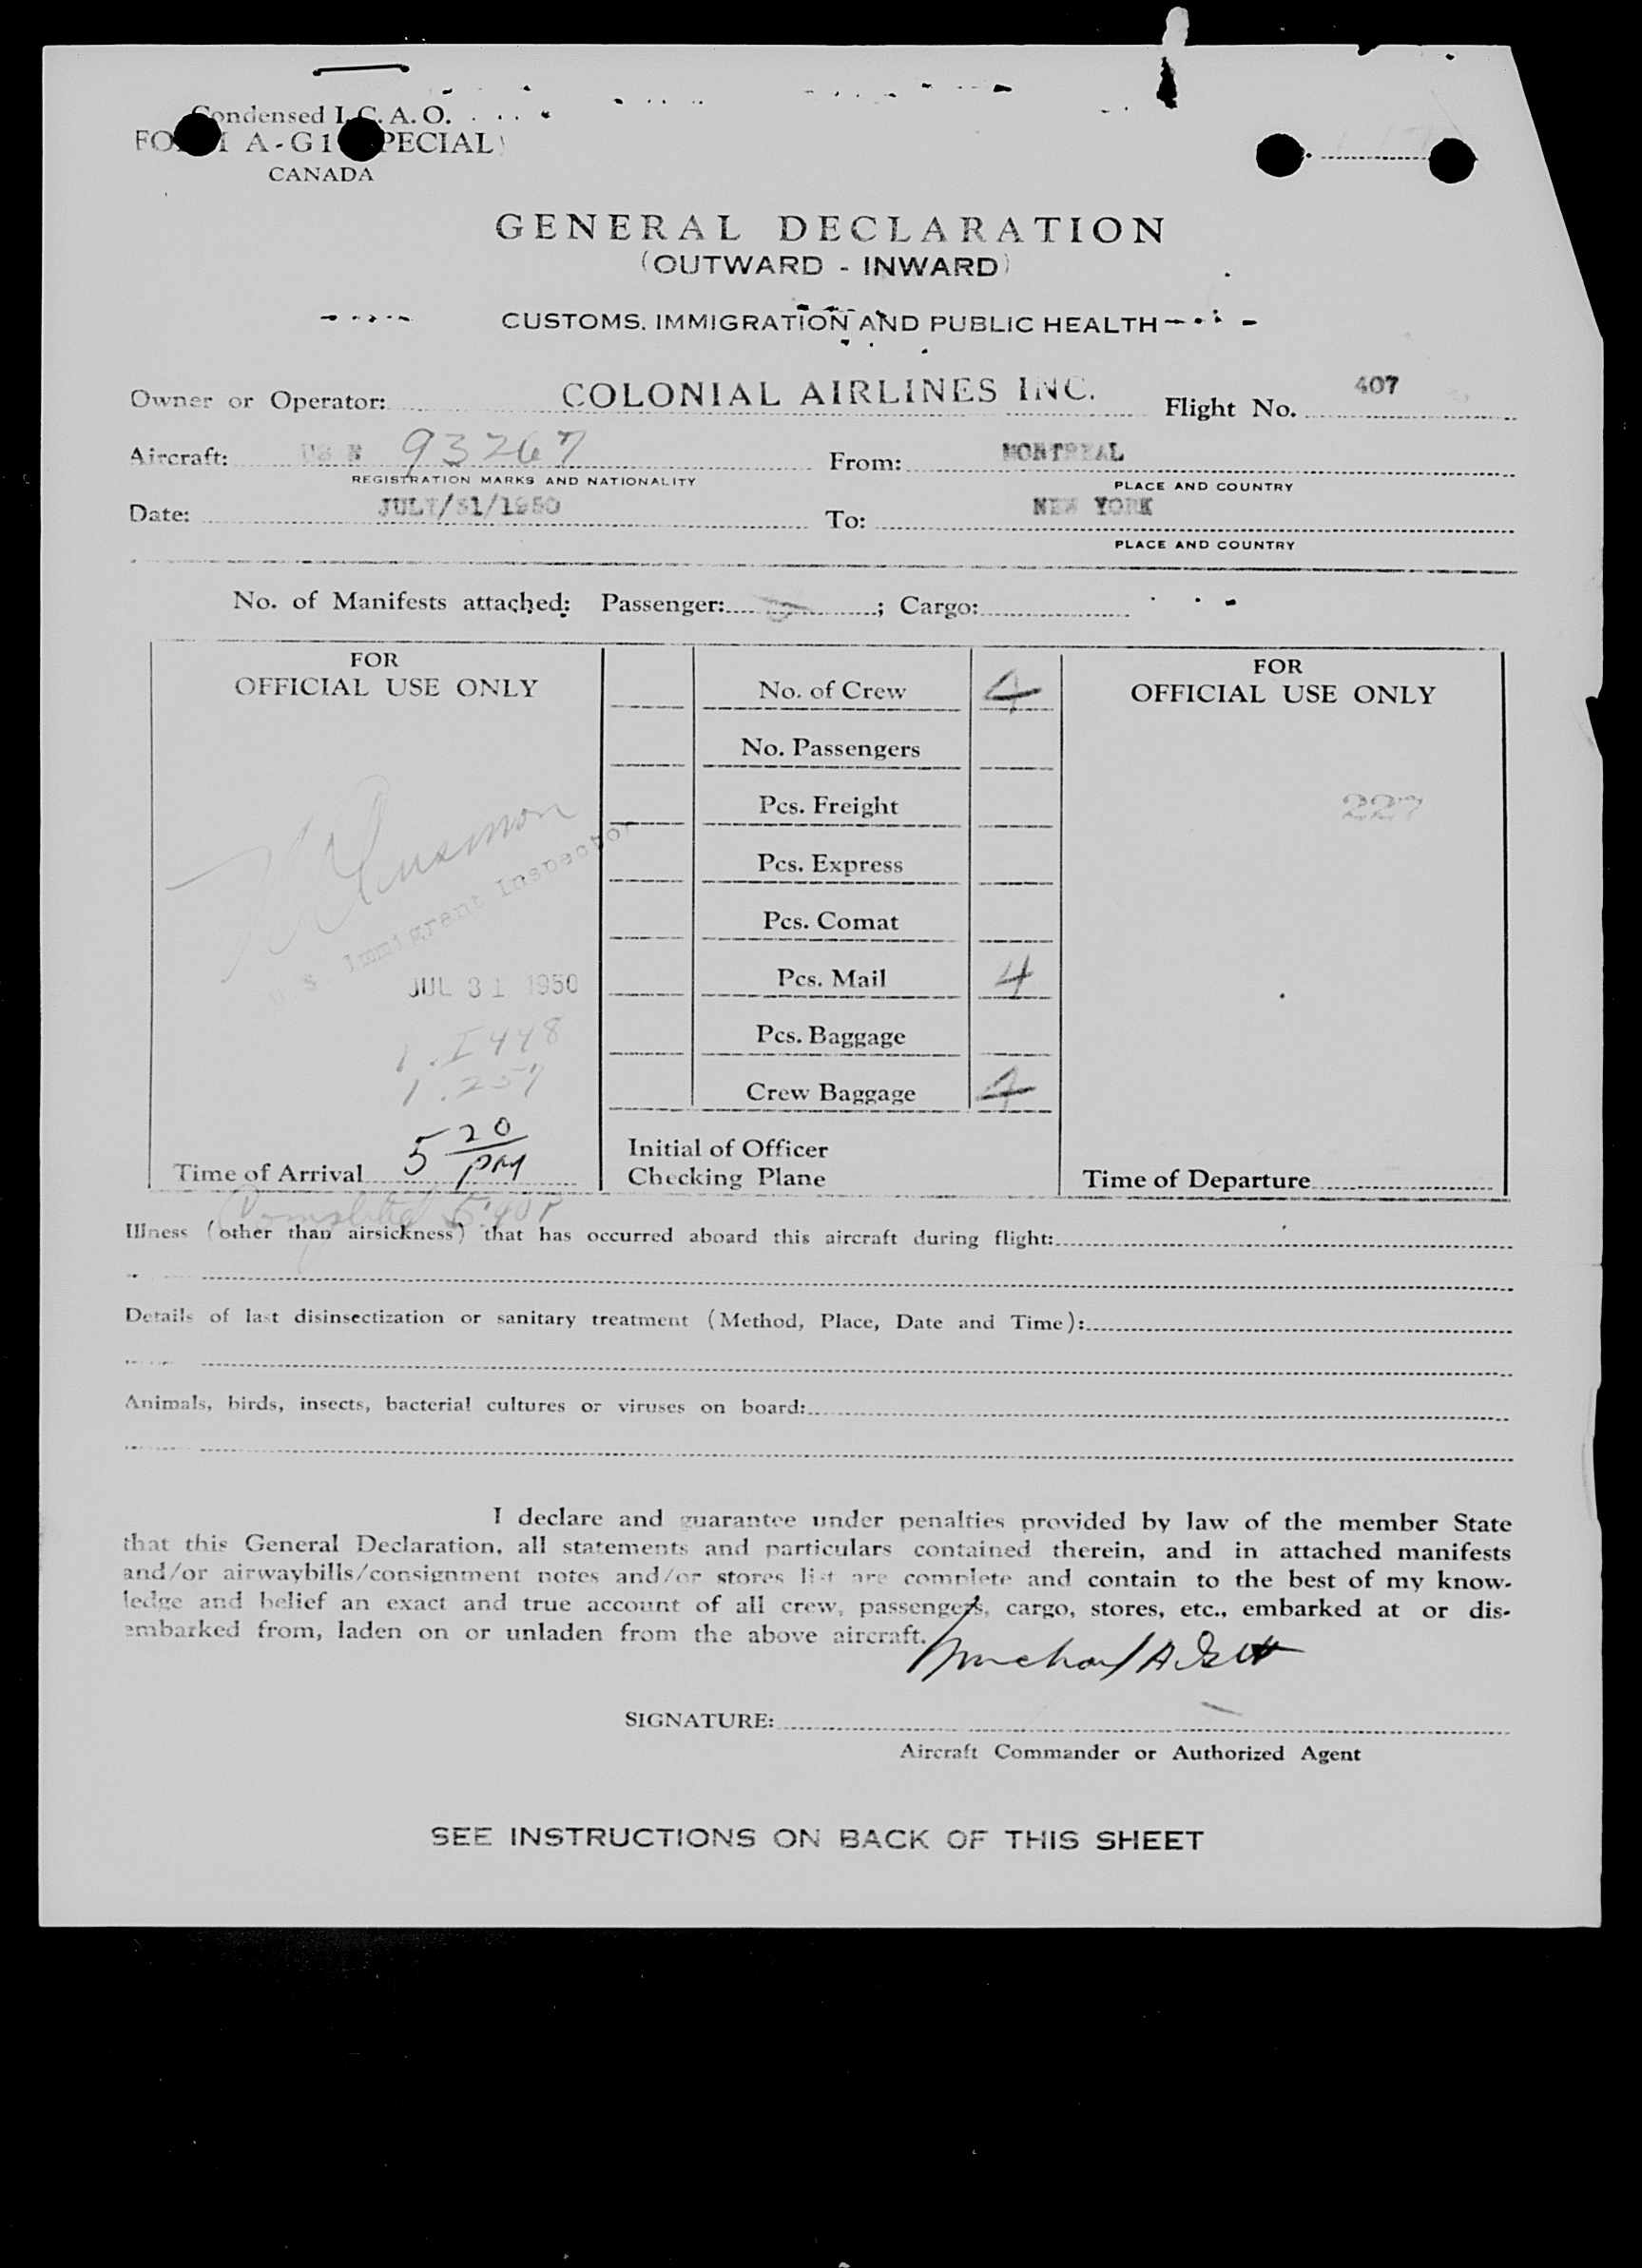 Condensed I.C.A.O.
FORM A-G1 (SPECIAL)
CANADA
GENERAL DECLARATION
(OUTWARD - INWARD)
CUSTOMS, IMMIGRATION AND PUBLIC HEALTH
Owner or Operator: COLONIAL AIRLINES INC. Flight No. 407
Aircraft: US N 93267 From: MONTREAL
REGISTRATION MARKS AND NATIONALITY PLACE AND COUNTRY
Date: JULY/31/1950 To: NEW YORK
PLACE AND COUNTRY
No. of Manifests attached: Passenger: ; Cargo:
FOR
OFFICIAL USE ONLY
No. of Crew 4
FOR
OFFICIAL USE ONLY
No. Passengers
Pcs. Freight
227
Pcs. Express
U S Immigrant Inspector
Pcs. Comat
Pcs. Mail 4
JUL 31 1950
Pcs. Baggage
1. I 448
1. 257
Crew Baggage 4
Time of Arrival 5 20 PM
Initial of Officer
Checking Plane
Time of Departure
Completed 5:40 P
Illness (other than airsickness) that has occurred aboard this aircraft during flight:
Details of last disinsectization or sanitary treatment (Method, Place, Date and Time):
Animals, birds, insects, bacterial cultures or viruses on board:
I declare and guarantee under penalties provided by law of the member State
that this General Declaration, all statements and particulars contained therein, and in attached manifests
and/or airwaybills/consignment notes and/or stores list are complete and contain to the best of my know-
ledge and belief an exact and true account of all crew, passengers, cargo, stores, etc., embarked at or dis-
embarked from, laden on or unladen from the above aircraft.
SIGNATURE:
Aircraft Commander or Authorized Agent
SEE INSTRUCTIONS ON BACK OF THIS SHEET